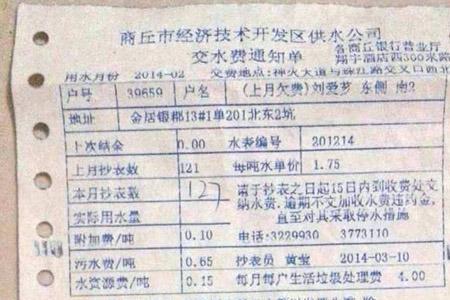 商丘市经济技术开发区供水公司
交水费通知单
各商丘银行营业厅
翔宇酒店西300米路
用水月份 2014-02 交费地点:神火大道与珠江路交叉口西北
户号 39659 户名 (上月欠费)刘爱芗 东侧 南2
地址 金居银郡13#1单201北东2坑
上次结金 0.00 水表编号 201214
上月抄表数 121 每吨水单价 1.75
本月抄表数 127 请于抄表之日起15日内到收费处交
纳水费,逾期不交加收水费违约金,
实际用水量 直至对其采取停水措施
附加费/吨 0.10 电话:3229930 3773110
污水费/吨 0.65 抄表员 黄莹 2014-03-10
水资源费/吨 0.15 每月每户生活垃圾处理费 4.00